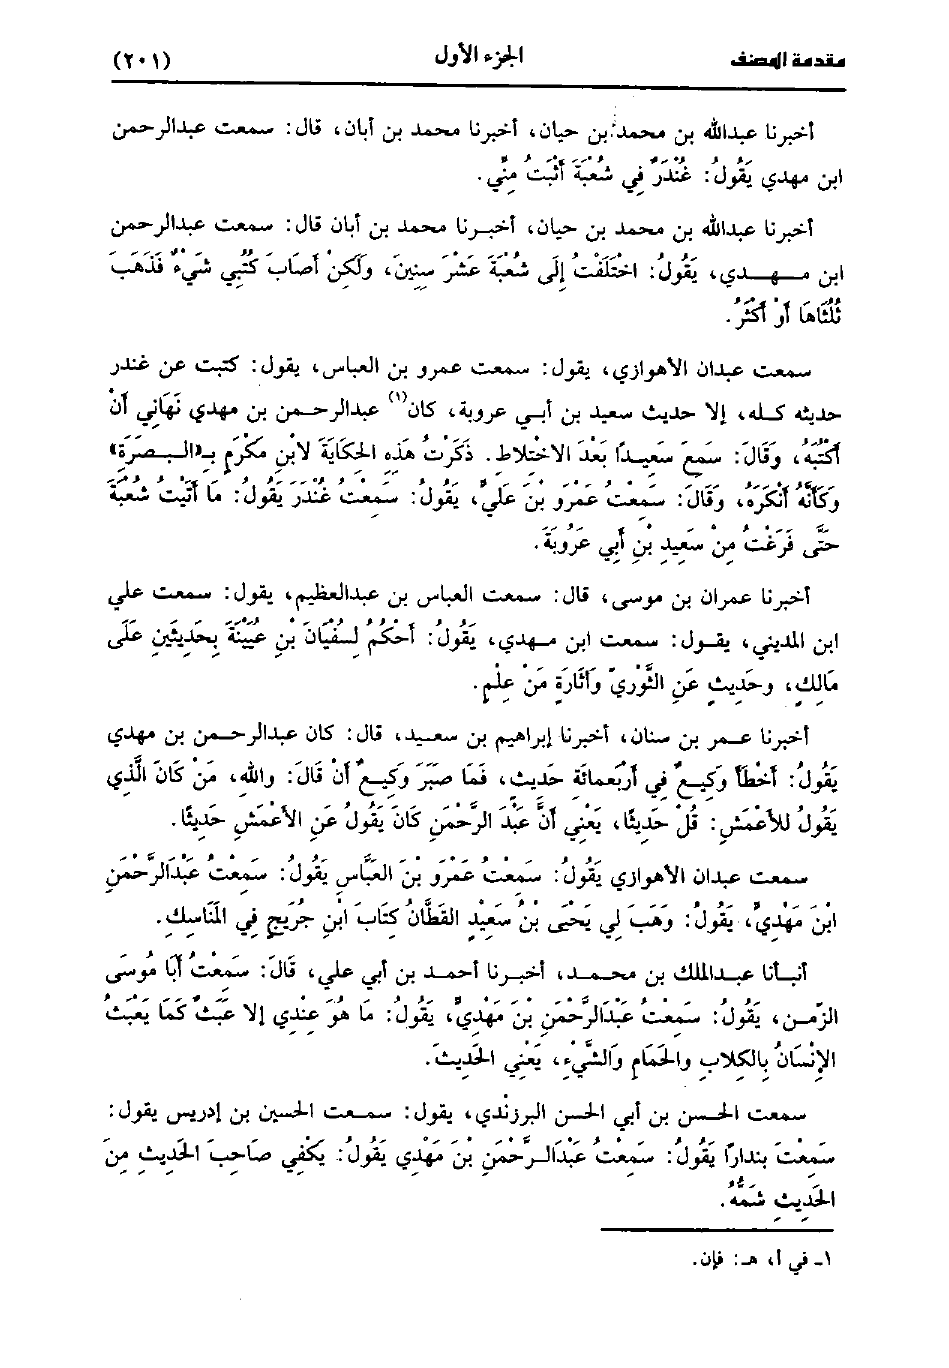 مقدمة المصنف الجزء الأول (٢٠١)
أخبرنا عبدالله بن محمد بن حيان، أخبرنا محمد بن أبان، قال: سمعت عبدالرحمن
ابن مهدي يَقُولُ: غُنْدَرٌ فِي شُعْبَةَ أَثْبَتُ مِنِّي.
أخبرنا عبدالله بن محمد بن حيان، أخبرنا محمد بن أبان قال: سمعت عبدالرحمن
ابن مهدي، يَقُولُ: اخْتَلَفْتُ إِلَى شُعْبَةَ عَشْرَ سِنِينَ، وَلَكِنْ أَصَابَ كُتُبِي شَيْءٌ فَذَهَبَ
ثُلُثَاهَا أَوْ أَكْثَرُ.
سمعت عبدان الأهوازي، يقول: سمعت عمرو بن العباس، يقول: كتبت عن غندر
حديثه كله، إلا حديث سعيد بن أبي عروبة، كان(١) عبدالرحمن بن مهدي نَهَانِي أَنْ
أَكْتُبَهُ، وَقَالَ: سَمِعَ سَعِيدًا بَعْدَ الاخْتِلاطِ. ذَكَرْتُ هَذِهِ الحِكَايَةَ لابْنِ مكْرَمٍ بـ«الْبصرَةِ»
وَكَأَنَّهُ أَنْكَرَهُ، وَقَالَ: سَمِعْتُ عَمْرَو بْنَ عَلِيٍّ، يَقُولُ: سَمِعْتُ غُنْدَرَ يَقُولُ: مَا أَتَيْتُ شُعْبَةَ
حَتَّى فَرَغْتُ مِنْ سَعِيدِ بْنِ أَبِي عَرُوبَةَ.
أخبرنا عمران بن موسى، قال: سمعت العباس بن عبدالعظيم، يقول: سمعت علي
ابن المديني، يقول: سمعت ابن مهدي، يَقُولُ: أَحْكُمُ لِسُفْيَانَ بْنِ عُيَيْنَةَ بِحَدِيثَيْنِ عَلَى
مَالِكٍ، وحَدِيثٍ عَنِ الثَّوْرِيِّ وَأَثَارَةٍ مَنْ عِلْمٍ.
أخبرنا عمر بن سنان، أخبرنا إبراهيم بن سعيد، قال: كان عبدالرحمن بن مهدي
يَقُولُ: أَخْطَأَ وَكِيعٌ فِي أَرْبَعمائَةِ حَدِيث، فَمَا صَبَرَ وَكِيعٌ أَنْ قَالَ: والله، مَنْ كَانَ الَّذِي
يَقُولُ لِلأَعْمَشِ: قُلْ حَدِيثًا، يَعْنِي أَنَّ عَبْدَ الرَّحْمَنِ كَانَ يَقُولُ عَنِ الأَعْمَشِ حَدِيثًا.
سمعت عبدان الأهوازي يَقُولُ: سَمِعْتُ عَمْرَو بْنَ العَبَّاسِ يَقُولُ: سَمِعْتُ عَبْدَالرَّحْمَنِ
ابْنَ مَهْدِيٍّ، يَقُولُ: وَهَبَ لِي يَحْيَى بْنُ سَعِيدٍ القَطَّانُ كِتَابَ ابْنِ جُرَيجٍ فِي المَنَاسِكِ.
أنبأنا عبدالملك بن محمد، أخبرنا أحمد بن أبي علي، قَالَ: سَمِعْتُ أَبَا مُوسَى
الزَّمِن، يَقُولُ: سَمِعْتُ عَبْدَالرَّحْمَنِ بْنَ مَهْدِيٍّ، يَقُولُ: مَا هُوَ عِنْدِي إِلا عَبَثٌ كَمَا يَعْبَثُ
الإِنْسَانُ بِالكِلابِ والحَمَامِ وَالشَّيْءِ، يَعْنِي الحَدِيثَ.
سمعت الحسن بن أبي الحسن البرزندي، يقول: سمعت الحسين بن إدريس يقول:
سَمِعْتُ بندارًا يَقُولُ: سَمِعْتُ عَبْدَالرَّحْمَنِ بْنَ مَهْدِي يَقُولُ: يَكْفِي صَاحِبَ الحَدِيثِ مِنَ
الحَدِيثِ شَمُّهُ.
١- في أ، هـ: فإن.